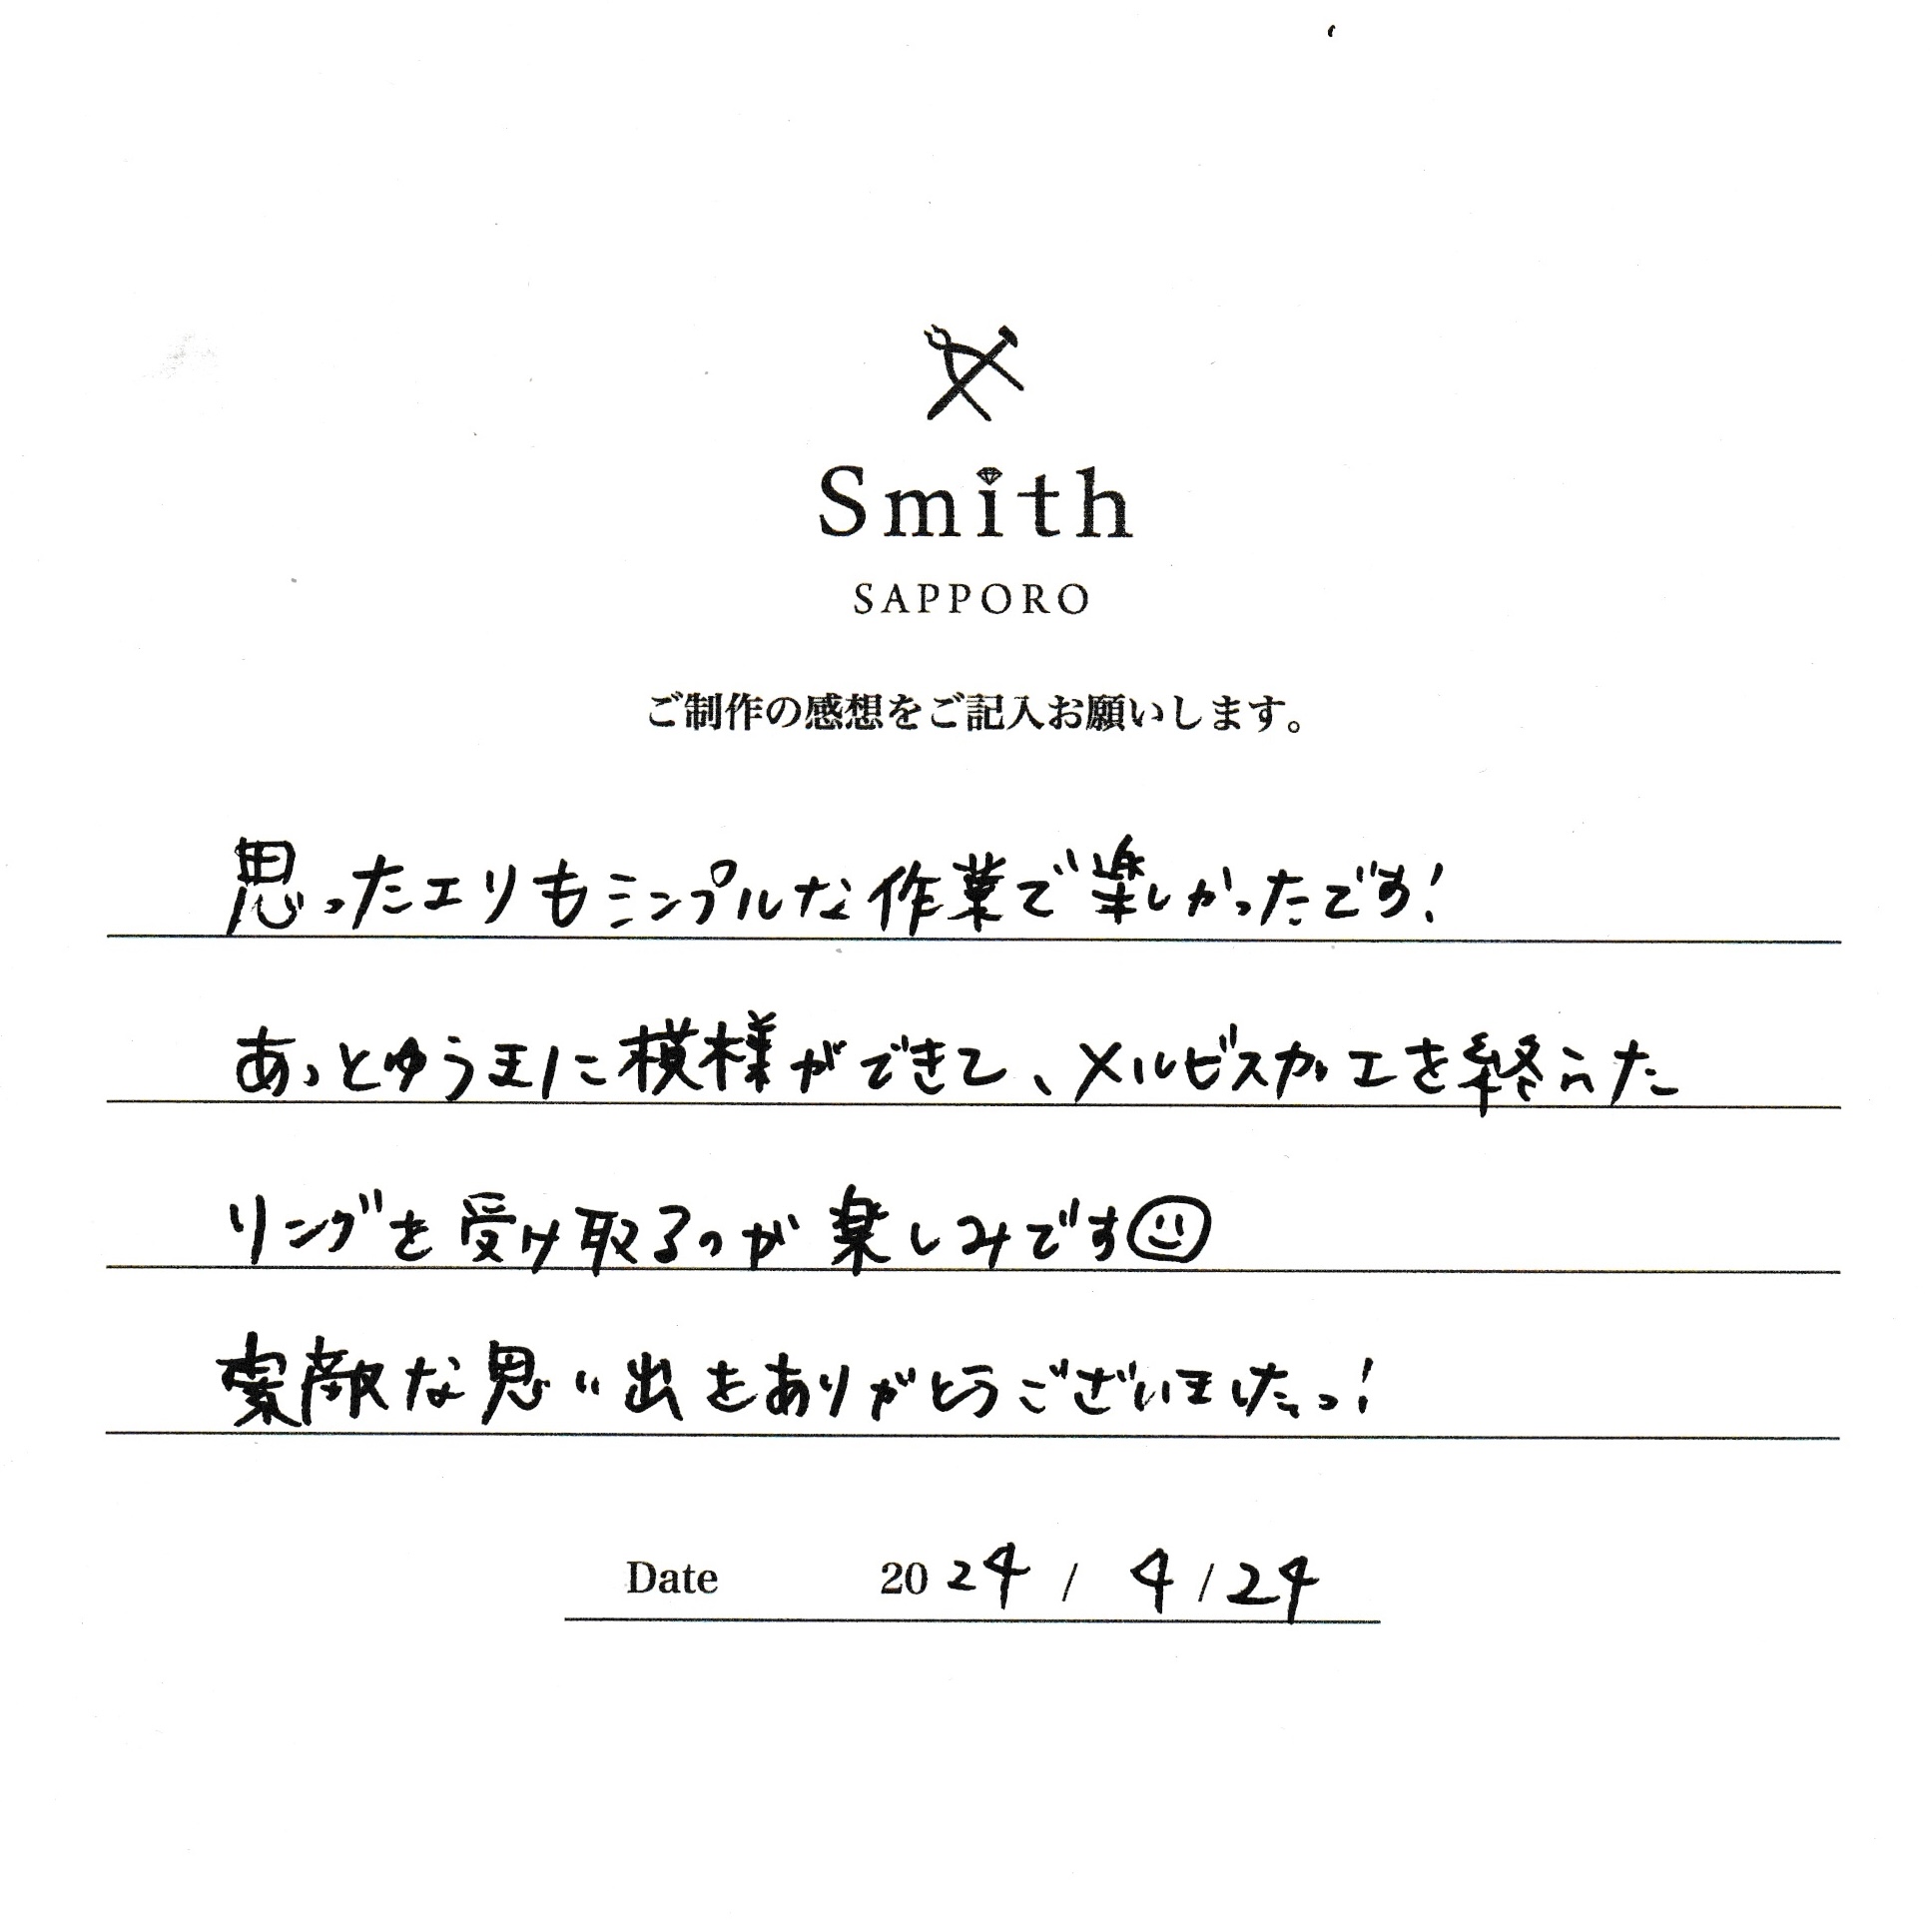 Smith
SAPPORO
ご制作の感想をご記入お願いします。
思ったよりもシンプルな作業で楽しかったです!
あっとゆうまに模様ができて、メルビス加工を終えた
リングを受け取るのが楽しみです
素敵な思い出をありがとうございましたっ!
Date 2024 / 4 / 24